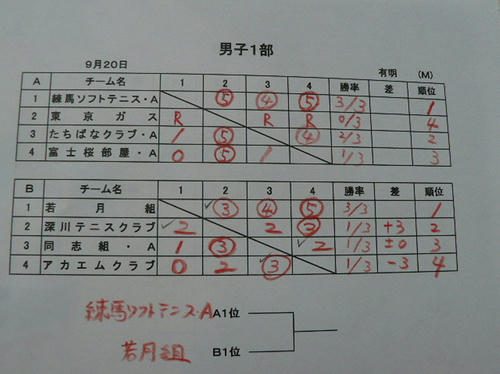 男子1部
9月20日 有明 (M)
A チーム名 1 2 3 4 勝率 差 順位
1 練馬ソフトテニス・A ⑤ ④ ⑤ 3/3 1
2 東京ガス R R R 0/3 4
3 たちばなクラブ・A 1 ⑤ ④ 2/3 2
4 富士桜部屋・A 0 ⑤ 1 1/3 3
B チーム名 1 2 3 4 勝率 差 順位
1 若月組 ③ ④ ⑤ 3/3 1
2 深川テニスクラブ 2 2 ③ 1/3 +3 2
3 同志組・A 1 ③ 2 1/3 ±0 3
4 アカエムクラブ 0 2 ③ 1/3 -3 4
練馬ソフトテニス・A A1位
若月組 B1位